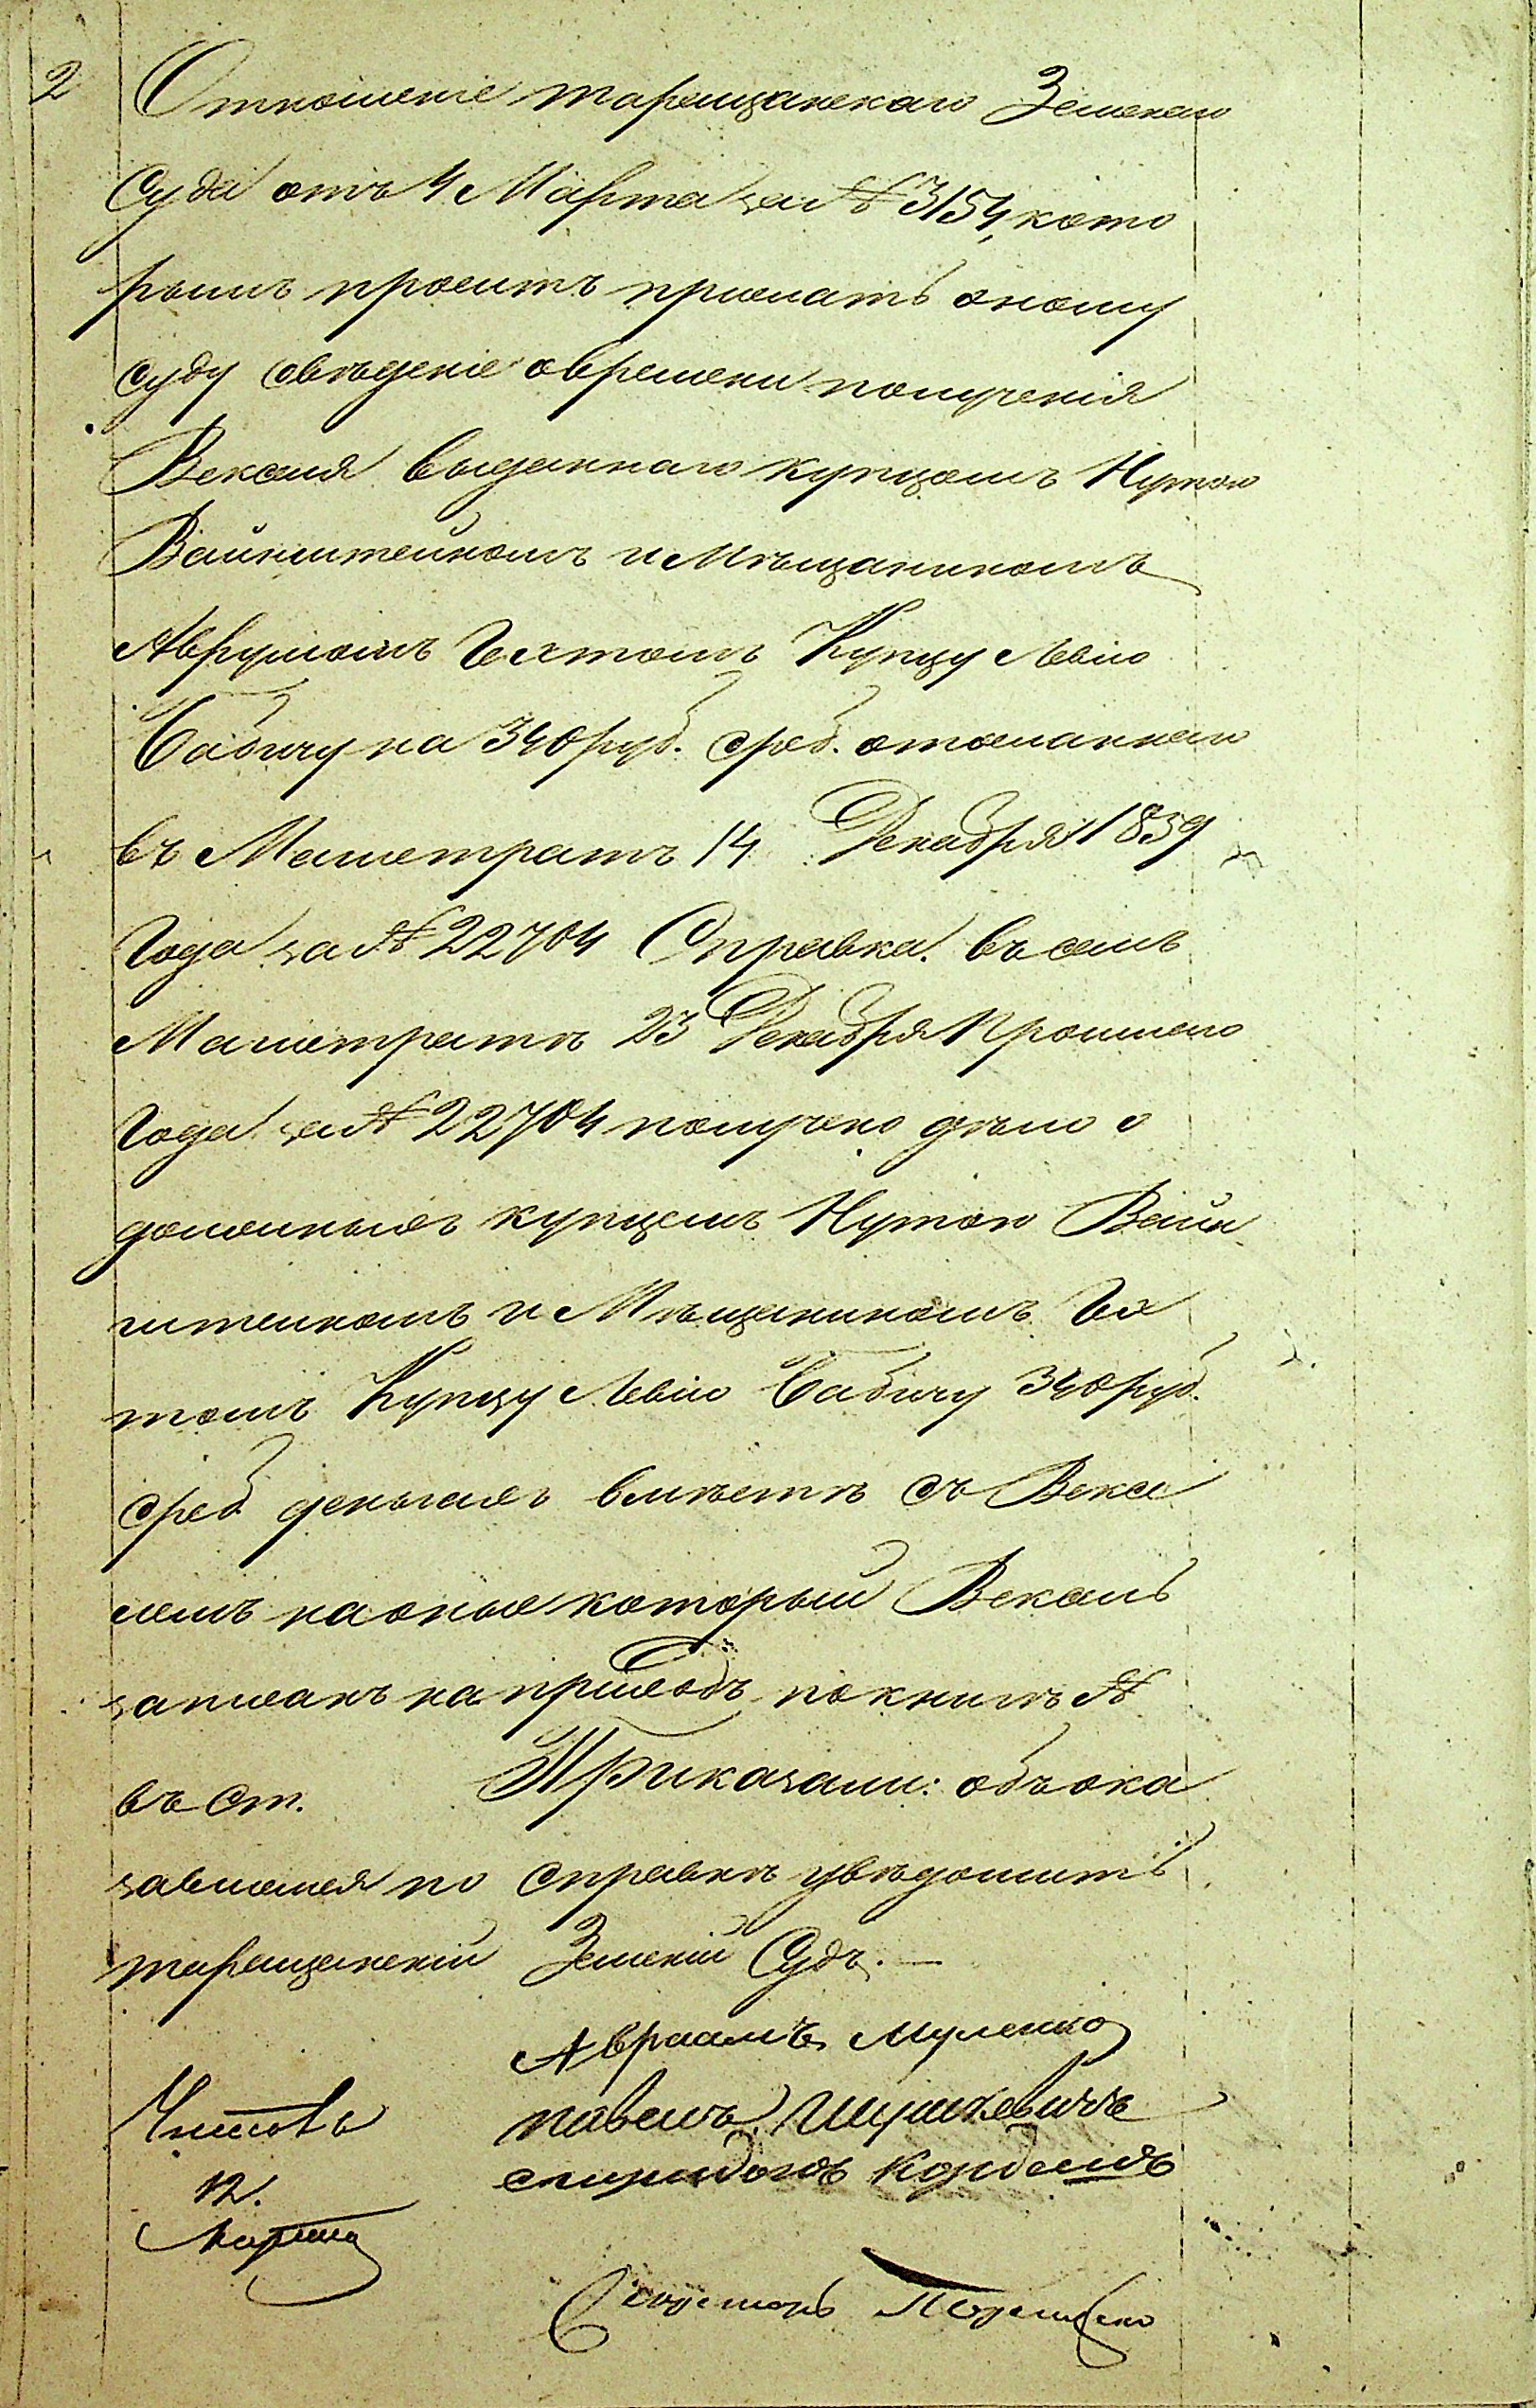 2 Отношеніе таращанскаго Земскаго
Суда отъ 4 Марта за № 3154, кото
рымъ проситъ прислать оному
суду свѣденіе о времени полученія
Векселя выданнаго купцомъ Нутою
Вайнштейномъ и Мѣщаниномъ
Аврумомъ Гехтомъ Купцу Левію
Бабичу на 340 руб. среб. отосланнаго
въ Магистратъ 14 Декабря 1839
Года за № 22704 Справка. въ семъ
Магистратѣ 23 Декабря прошлаго
Года за № 22704 получено дѣло о
должныхъ купцемъ Нутою Вайн
штейномъ и Мѣщаниномъ Гех
томъ Купцу Левію Бабичу 340 руб.
среб деньгахъ вмѣстѣ съ Вексе
лемъ на оные который Вексель
записанъ на приходъ по книгѣ №
въ ст. Приказали: объ ока
завшемся по справкѣ увѣдомить
таращанскій Земскій Судъ. —
Авраамъ
павелъ Шушкевичъ
Читалъ спиридонъ
12.
Марта
Секретарь